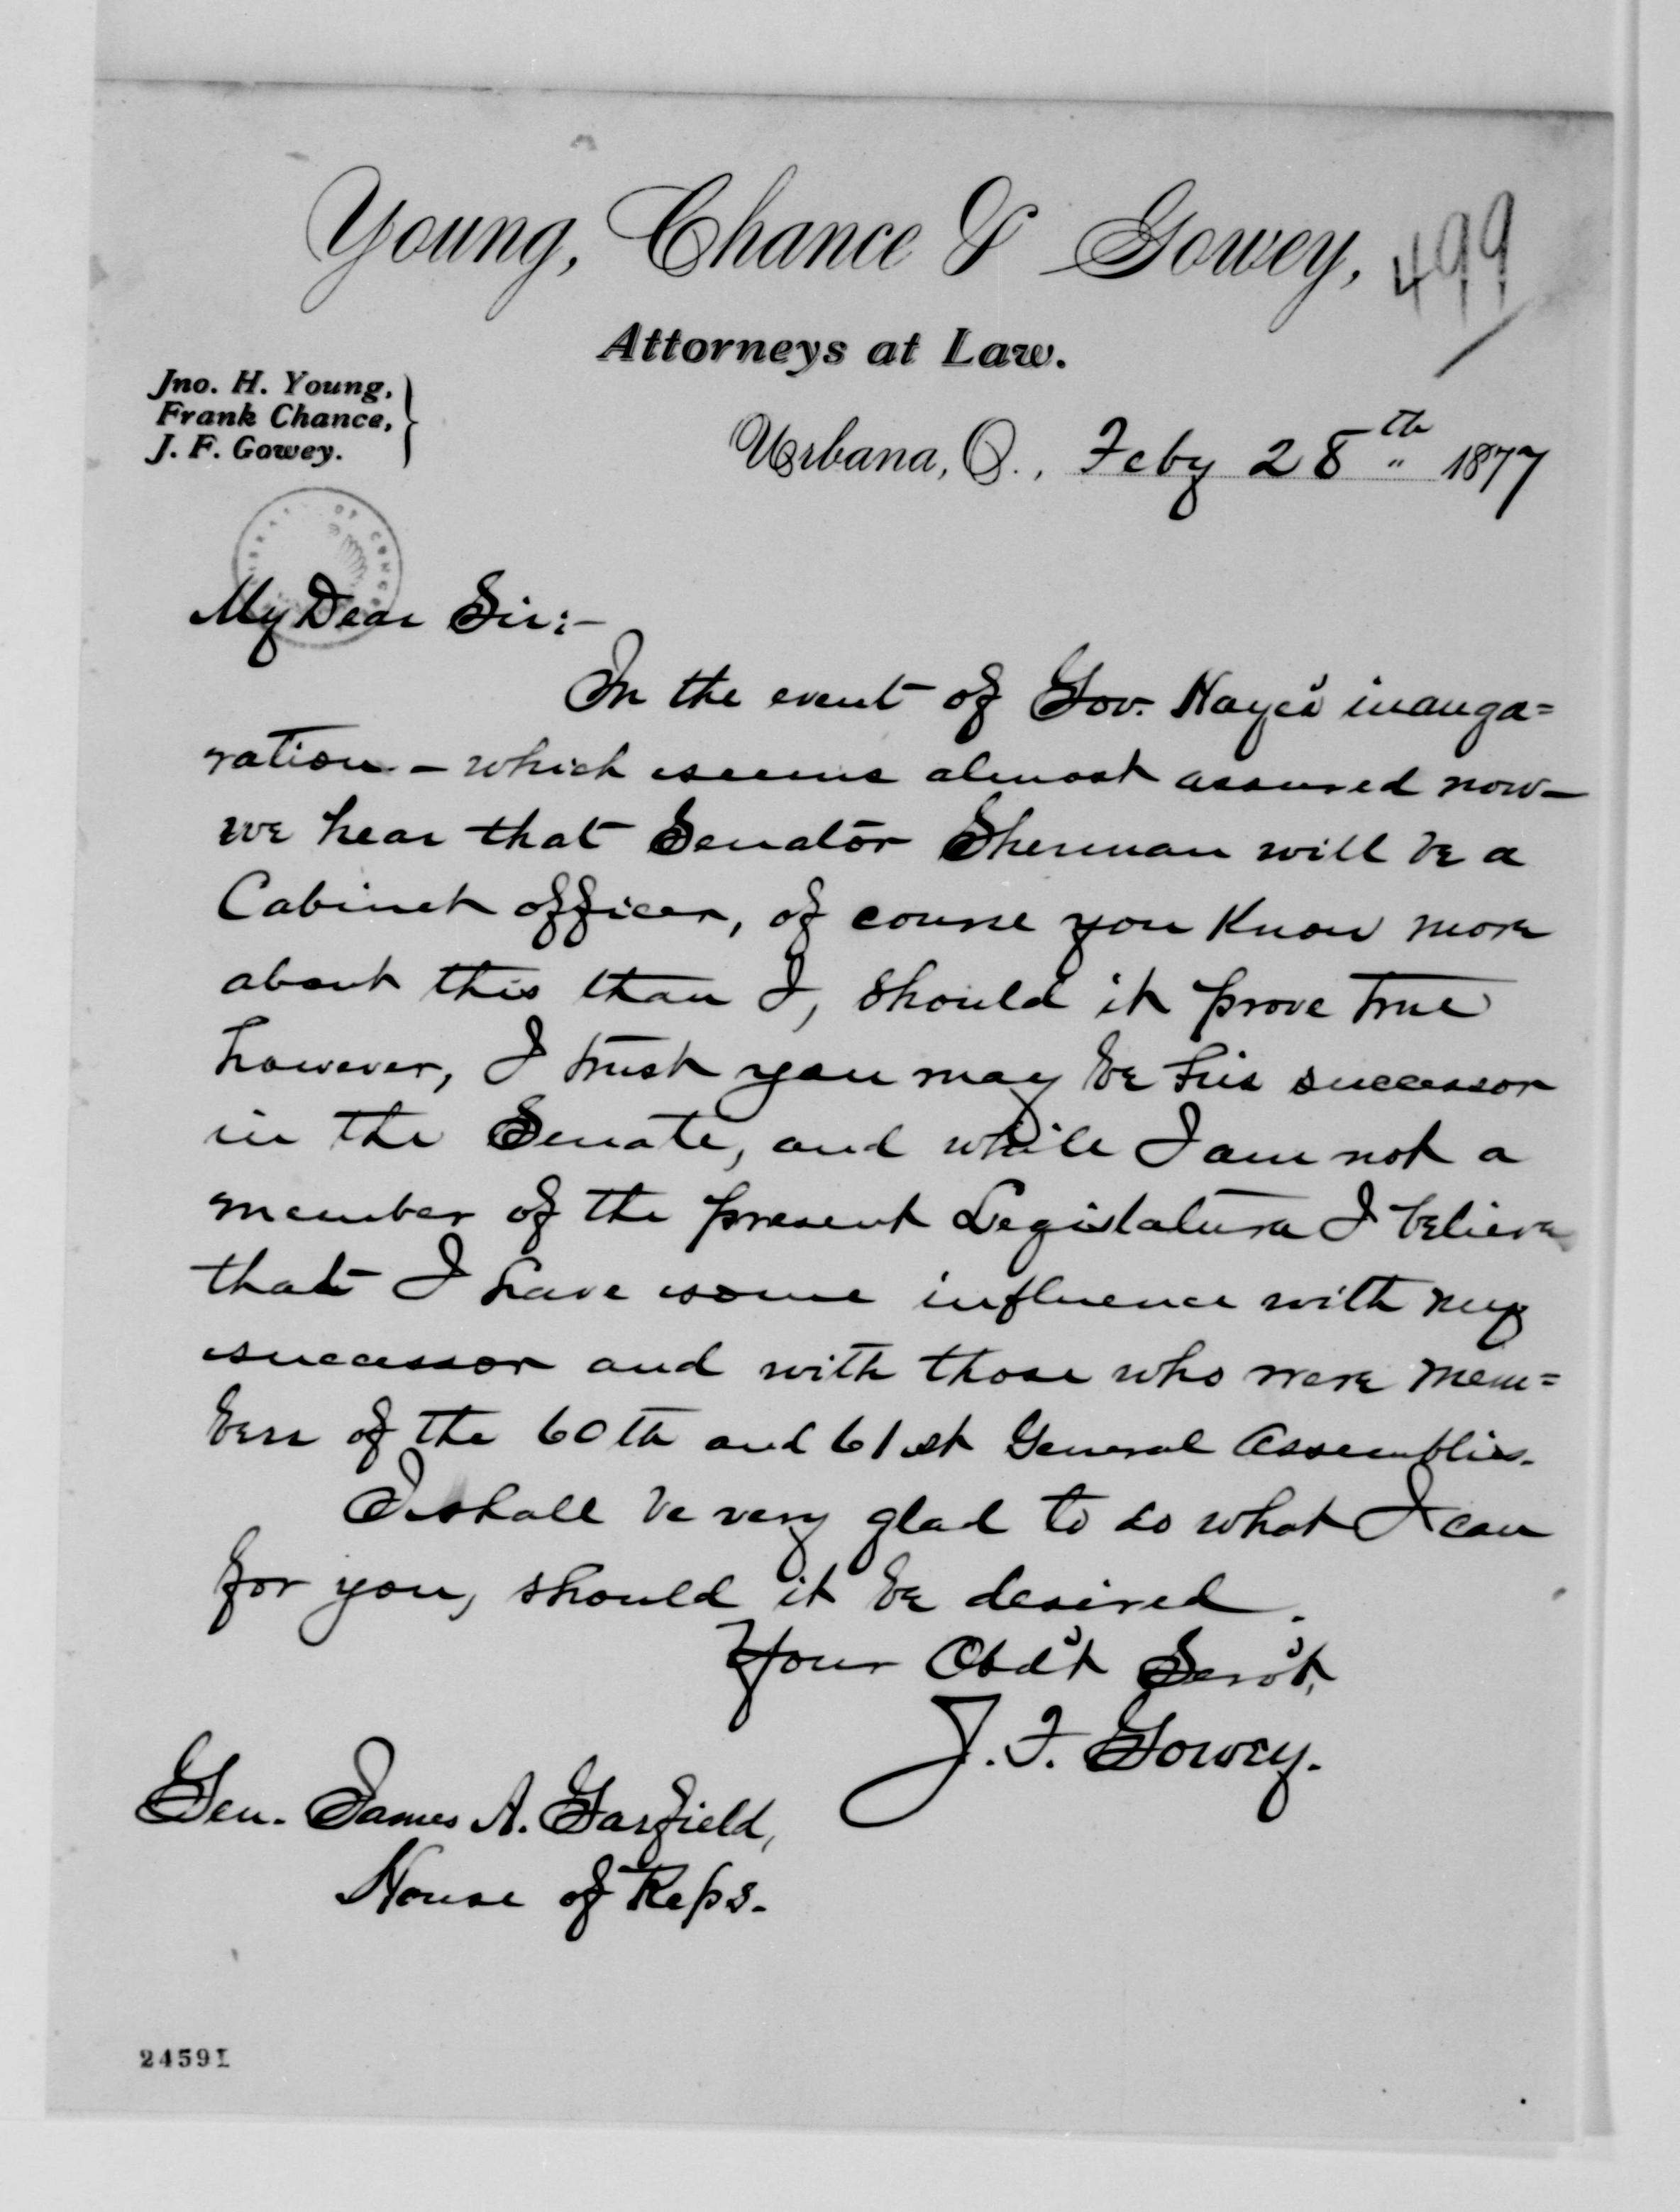 Young, Chance & Gowey,
499
Attorneys at Law.
Jno. H. Young,
Frank Chance,
J. F. Gowey.
Urbana, O., Feby 28th 1877
My Dear Sir:-
In the event of Gov. Hayes' inauga=
ration - which seems almost assured now -
we hear that Senator Sherman will be a
Cabinet officer, of course you know more
about this than I, should it prove true
however, I trust you may be his successor
in the Senate, and while I am not a
member of the present Legislature I believe
that I have some influence with my
successor and with those who were mem=
bers of the 60th and 61st General Assemblies.
I shall be very glad to do what I can
for you, should it be desired.
Your Obd't Serv't,
J. F. Gowey.
Gen. James A. Garfield,
House of Reps.
24591